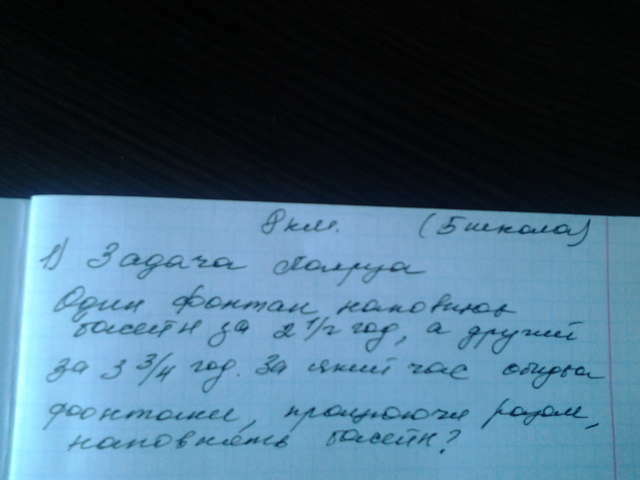 8 кл. (5 школа)
1) Задача
Один фонтан наповнює
басейн за 2 1/2 год, а другий
за 3 3/4 год. За який час обидва
фонтани, працюючи разом,
наповнять басейн?